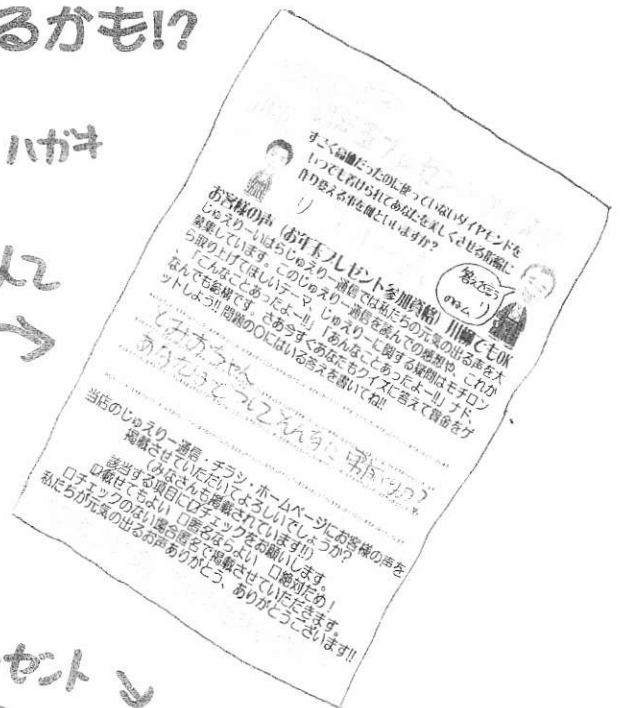 るかも!?
ハガキ
すごく高価だったのに使っていないダイヤモンドを
いつでも着けられてあなたを美しくさせる指輪に
作り変える事を何といいますか？
リ
答えを言う
のかよ
お客様の声（お年玉プレゼント参加資格）川柳でもOK
じゅえりーいはらじゅえりー通信では私たちの元気の出る声を大
募集しています。このじゅえりー通信を読んでの感想や、これか
ら取り上げてほしいテーマ、じゅえりーに関する疑問はモチロン
、「こんなことあったよー!!」「あんなことあったよー!!」ナド、
なんでも結構です。さあ今すぐあなたもクイズに答えて賞金をゲ
ットしよう!! 問題の〇にはいる答えを書いてね!!
とみおちゃん
あなたはどうしてそんなに
当店のじゅえりー通信・チラシ・ホームページにお客様の声を
掲載させていただいてよろしいでしょうか？
（みなさんも掲載されています!!）
該当する項目に口チェックをお願いします。
口載せてもよい　口匿名ならよい　口絶対だめ！
口チェックのない場合匿名で掲載させていただきます。
私たちが元気の出るお声ありがとう、ありがとうございます!!
ゼント